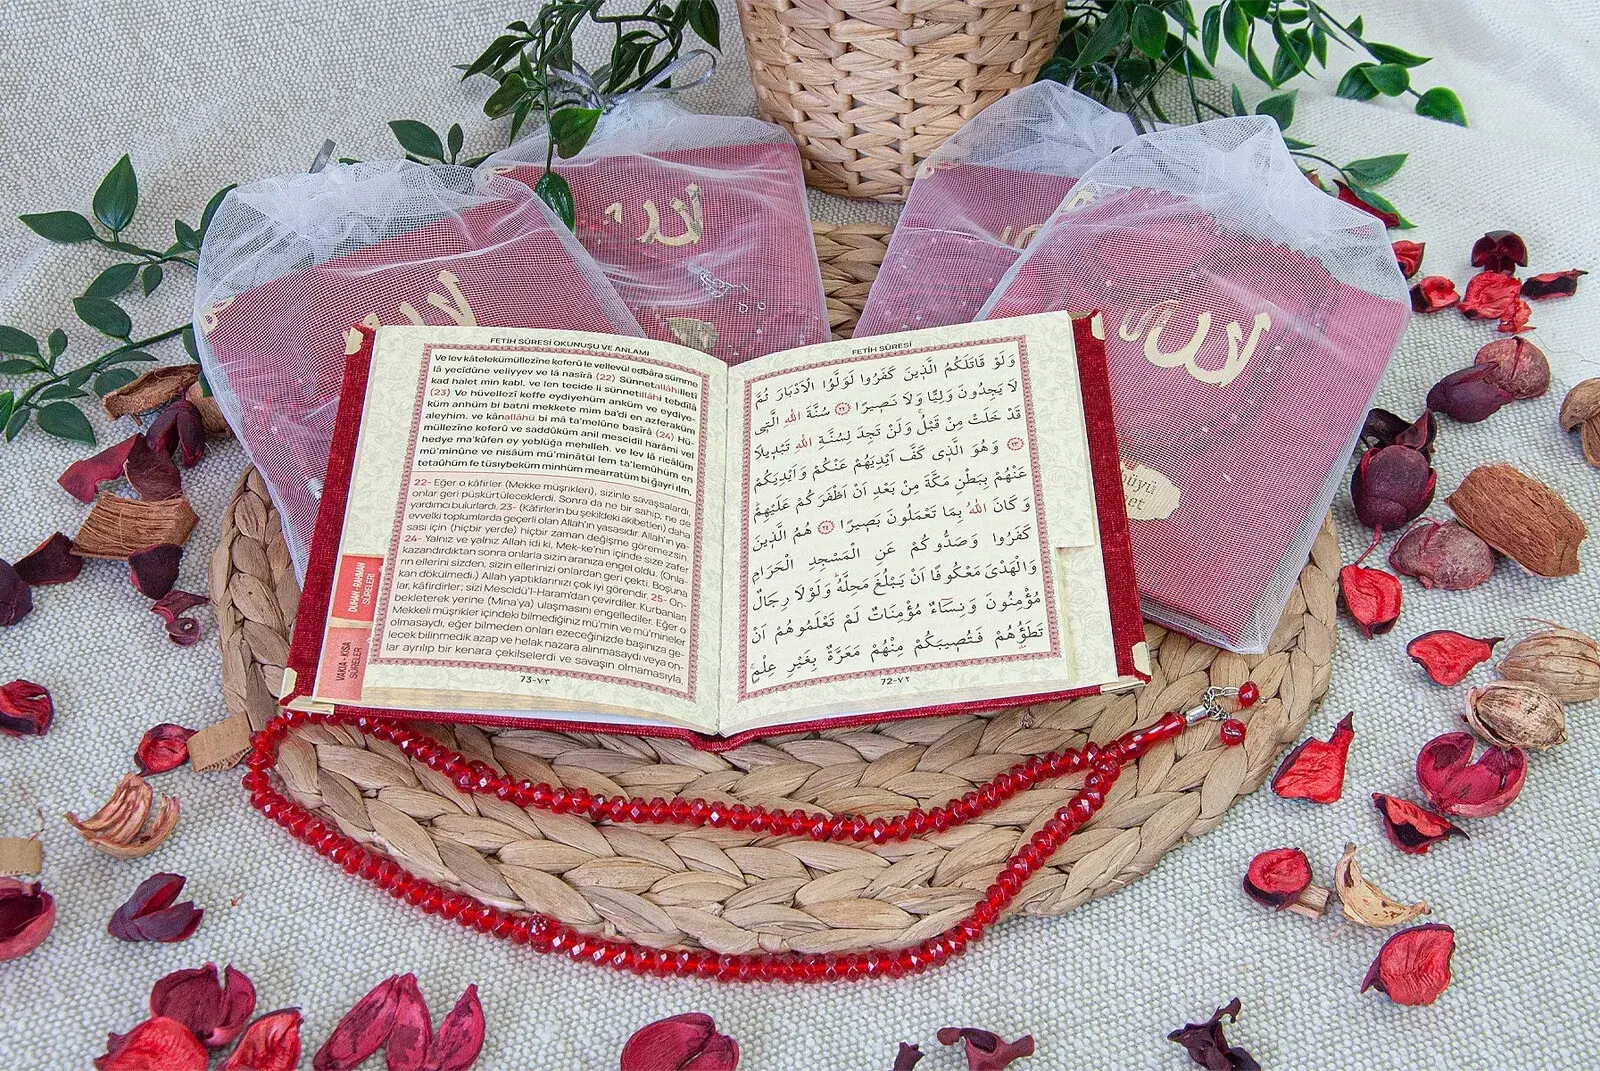 FETİH SÛRESİ OKUNUŞU VE ANLAMI
Ve lev kâtelekümüllezîne keferû le vellevül edbâra sümme
lâ yecidûne veliyyev ve lâ nasîrâ (22) Sünnetallâhilletî
kad halet min kabl, ve len tecide li sünnetillâhi tebdîlâ
(23) Ve hüvellezî keffe eydiyehüm anküm ve eydiye-
küm anhüm bi batni mekkete mim ba'di en azferaküm
aleyhim. ve kânallâhü bi mâ ta'melûne basîrâ (24) Hü-
müllezîne keferû ve saddûküm anil mescidil harâmi vel
hedye ma'kûfen ey yeblüğa mehılleh. ve lev lâ ricâlüm
mü'minûne ve nisâüm mü'minâtül lem ta'lemûhüm en
tetaûhüm fe tüsıybeküm minhüm mearratüm bi ğayri ılm,
22- Eğer o kâfirler (Mekke müşrikleri), sizinle savaşsalardı,
onlar geri püskürtüleceklerdi. Sonra da ne sahip, ne de
yardımcı bulurlardı. 23- (Kâfirlerin bu şekildeki akıbetleri) daha
evvelki toplumlarda geçerli olan Allah'ın yasasıdır. Allah'ın ya-
sası için (hiçbir yerde) hiçbir zaman değişme göremezsin.
24- Yalnız ve yalnız Allah idi ki, Mek-ke'nin içinde size zafer
kazandırdıktan sonra onlarla sizin aranıza engel oldu. (Onla-
rın ellerini sizden, sizin ellerinizi onlardan geri çekti. Boşuna
kan dökülmedi.) Allah yaptıklarınızı çok iyi görendir. 25- On-
lar, kâfirdirler; sizi Mescidü'l-Haram'dan çevirdiler. Kurbanları
bekleterek yerine (Mina'ya) ulaşmasını engellediler. Eğer o
Mekkeli müşrikler içindeki bilmediğiniz mü'min ve mü'mineler
olmasaydı, eğer bilmeden onları ezeceğinizde başınıza ge-
lecek bilinmedik azap ve helak nazara alınmasaydı veya on-
lar ayrılıp bir kenara çekilselerdi ve savaşın olmamasıyla,
73-٧٣
DUHAN - RAHMAN
SÛRELERİ
VAKIA - KISA
SÛRELER
FETİH SÛRESİ
وَلَوْ قَاتَلَكُمُ الَّذ۪ينَ كَفَرُوا لَوَلَّوُا الْاَدْبَارَ ثُمَّ
لَا يَجِدُونَ وَلِيًّا وَلَا نَص۪يرًا ﴿٢٢﴾ سُنَّةَ اللّٰهِ الَّت۪ي
قَدْ خَلَتْ مِنْ قَبْلُۚ وَلَنْ تَجِدَ لِسُنَّةِ اللّٰهِ تَبْد۪يلًا
﴿٢٣﴾ وَهُوَ الَّذ۪ي كَفَّ اَيْدِيَهُمْ عَنْكُمْ وَاَيْدِيَكُمْ
عَنْهُمْ بِبَطْنِ مَكَّةَ مِنْ بَعْدِ اَنْ اَظْفَرَكُمْ عَلَيْهِمْ
وَكَانَ اللّٰهُ بِمَا تَعْمَلُونَ بَص۪يرًا ﴿٢٤﴾ هُمُ الَّذ۪ينَ
كَفَرُوا وَصَدُّوكُمْ عَنِ الْمَسْجِدِ الْحَرَامِ
وَالْهَدْيَ مَعْكُوفًا اَنْ يَبْلُغَ مَحِلَّهُ وَلَوْلَا رِجَالٌ
مُؤْمِنُونَ وَنِسَٓاءٌ مُؤْمِنَاتٌ لَمْ تَعْلَمُوهُمْ اَنْ
تَطَؤُ۫هُمْ فَتُص۪يبَكُمْ مِنْهُمْ مَعَرَّةٌ بِغَيْرِ عِلْمٍۚ
72-٧٢
الله
الله